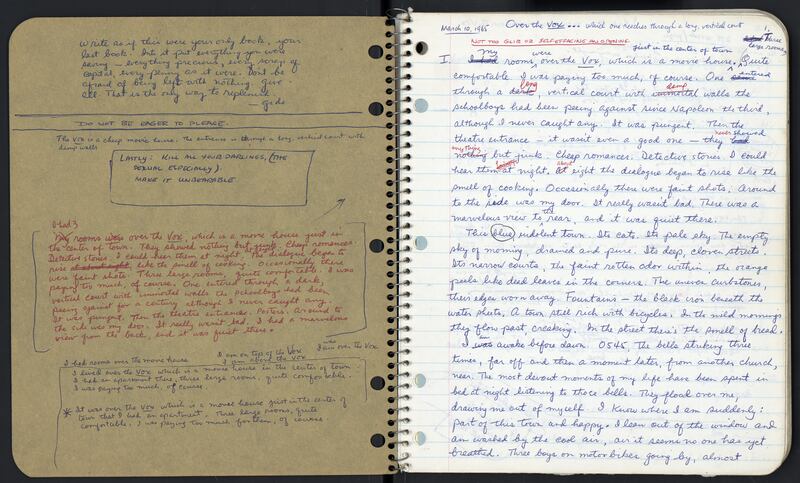 Write as if this were your only book, your
last book. Into it put everything you were
saving — everything precious, every scrap of
capital, every penny as it were. Don't be
afraid of being left with nothing. Give
all. That is the only way to replenish.
— Gide
DO NOT BE EAGER TO PLEASE.
The Vox is a cheap movie house. The entrance is through a long, vertical court with
damp walls
LASTLY: KILL ALL YOUR DARLINGS, (THE
SEXUAL ESPECIALLY).
MAKE IT UNBEARABLE
I had 3
My rooms were over the Vox, which is a movie house just in
the center of town. They showed nothing but junk. Cheap romances.
Detective stories. I could hear them at night. The dialogue began to
rise at about eight, like the smell of cooking. Occasionally there
were faint shots. Three large rooms, quite comfortable. I was
paying too much, of course. One entered through a dark,
vertical court with immortal walls the schoolboys had been
peeing against for a century although I never caught any.
It was pungent. Then the theatre entrance. Posters. Around to
the side was my door. It really wasn't bad. I had a marvelous
view from the back, and it was quiet there.
I had rooms over the movie house
I am on top of the Vox
I am above the Vox
was
I am over the Vox
I lived over the Vox which is a movie house in the center of town.
I had an apartment there, three large rooms, quite comfortable.
I was paying too much, of course.
* It was over the Vox which is a movie house just in the center of
town that I had an apartment. Three large rooms, quite
comfortable. I was paying too much for them, of course.
March 10, 1965
Over the Vox... which one reaches through a long, vertical court
NOT TOO GLIB OR SELF-EFFACING AN OPENING
My were just in the center of town
Three
large rooms,
I. rooms over the Vox, which is a movie house. Quite
comfortable. I was paying too much, of course. One entered
long damp
through a dark, vertical court with immortal walls the
schoolboys had been peeing against since Napoleon the third,
although I never caught any. It was pungent. Then the
never showed
theatre entrance — it wasn't even a good one — they had
anything
nothing but junk. Cheap romances. Detective stories. I could
about
hear them at night. At eight the dialogue began to rise like the
smell of cooking. Occasionally there were faint shots. Around
to the side was my door. It really wasn't bad. There was a
the
marvelous view to rear, and it was quiet there.
This blue, indolent town. Its cats. Its pale sky. The empty
sky of morning, drained and pure. Its deep, cloven streets.
Its narrow courts, the faint rotten odor within, the orange
peels like dead leaves in the corners. The uneven curbstones,
their edges worn away. Fountains — the black iron beneath the
water shuts. A town still rich with bicycles. In the mild mornings
they flow past, creaking. In the street there's the smell of bread.
am
I was awake before dawn. 0545. The bells striking three
times, far off and then a moment later, from another church,
near. The most devout moments of my life have been spent in
bed at night listening to those bells. They flood over me,
drawing me out of myself. I know where I am suddenly:
part of this town and happy. I lean out of the window and
am washed by the cool air, air it seems no one has yet
breathed. Three boys on motorbikes going by, almost